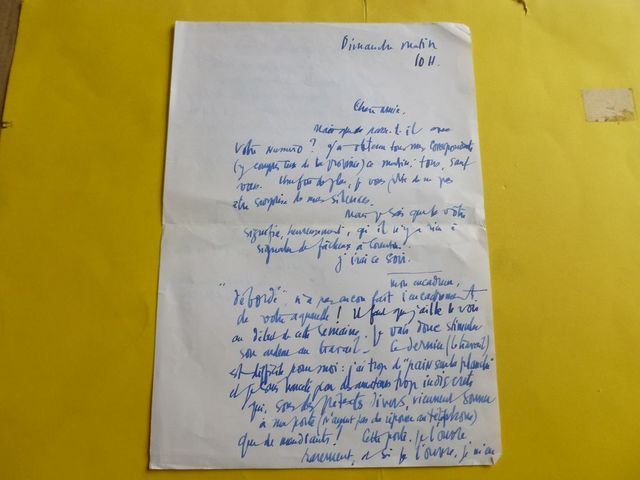 Dimanche matin
10 H.
Chère amie,
Mais que se passe-t-il avec
votre numéro ? J'ai obtenu tous mes correspondants
(y compris ceux de la province) ce matin: tous, sauf
vous. Une fois de plus, je vous prie de ne pas
être surprise de mes silences.
Mais je sais que le vôtre
signifie, heureusement, qu'il n'y a rien à
signaler de fâcheux à
j'irai ce soir.
mon encadreur,
"débordé" n'a pas encore fait l'encadrement
de votre aquarelle ! Il faut que j'aille le voir
au début de cette semaine. Je vais donc stimuler
son ardeur au travail - Ce dernier (le travail)
est difficile pour moi : j'ai trop de "pain sur la planche"
et je suis par des amateurs trop indiscrets
qui, sous des prétextes divers, viennent sonner
à ma porte (n'ayant pas de réponse au téléphone)
que de mendiants ! Cette porte, je l'ouvre
rarement, et si je l'ouvre, je m'en